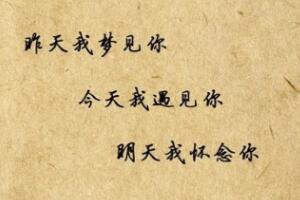 昨天我梦见你
今天我遇见你
明天我怀念你